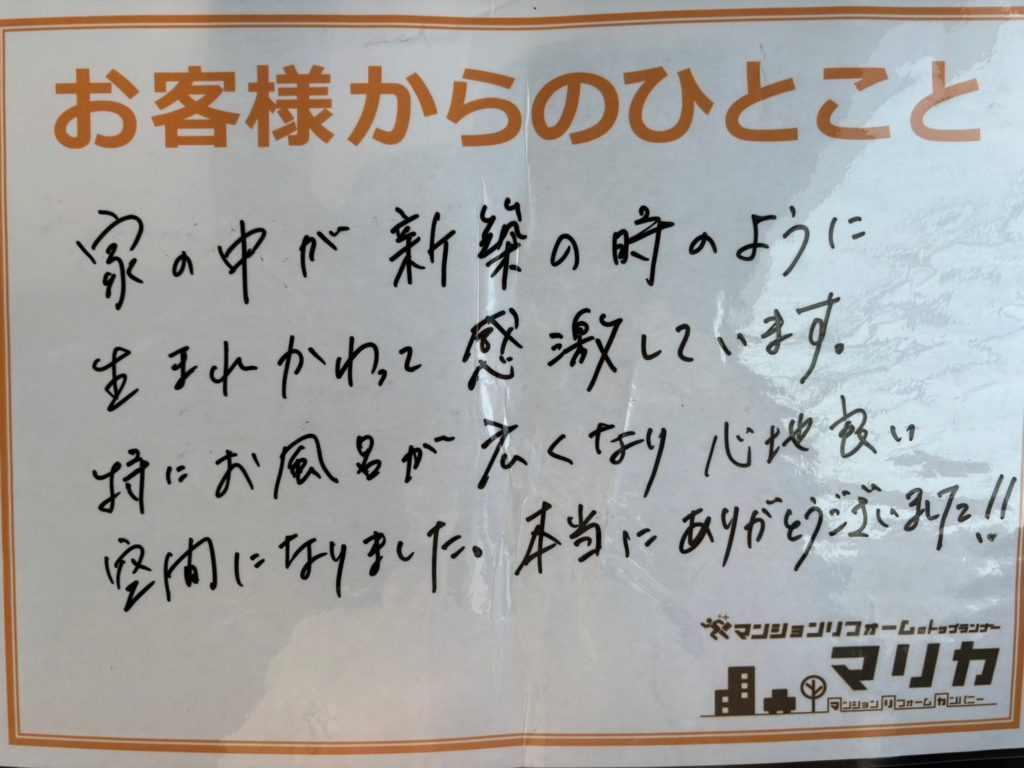 お客様からのひとこと
家の中が新築の時のように
生まれかわって感激しています。
特にお風呂が広くなり心地良い
空間になりました。本当にありがとうございました!!
マンションリフォームのトップランナー
マリカ
マンションリフォームカンパニー